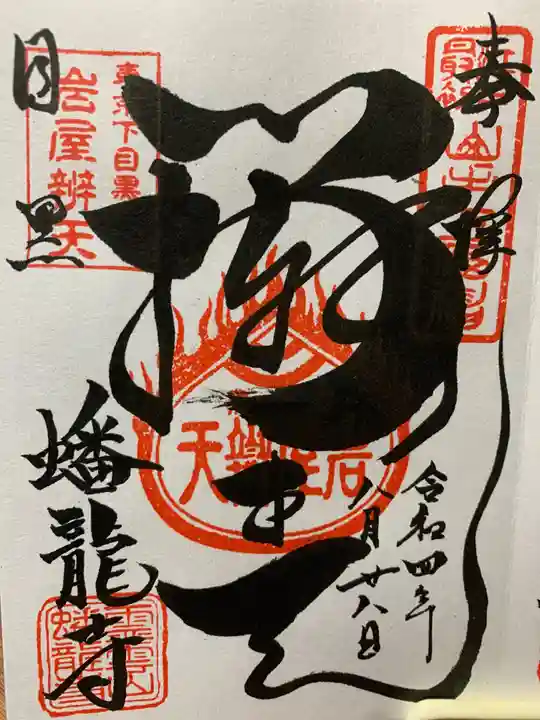 奉拝
辨才天
令和四年
八月廿八日
目黒
蟠龍寺
東京下目黒
岩屋辨天
岩屋辨天